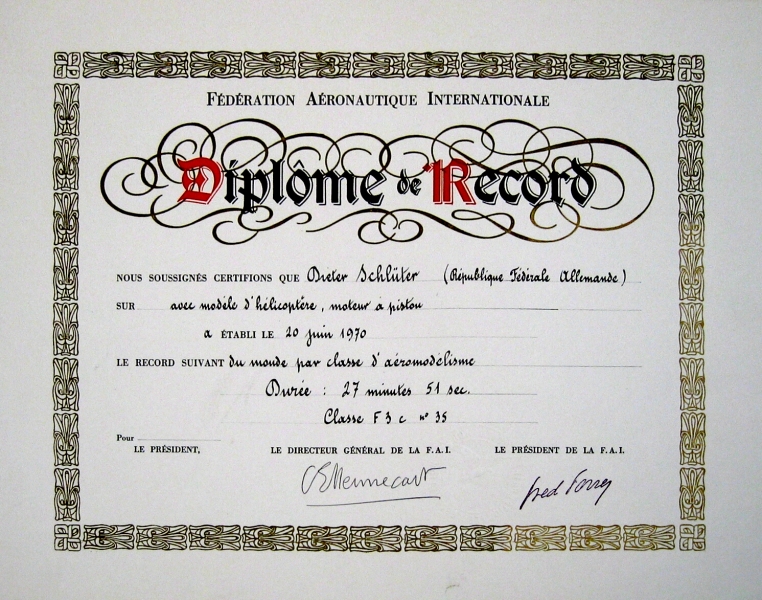 FÉDÉRATION AÉRONAUTIQUE INTERNATIONALE
Diplôme de Record
NOUS SOUSSIGNÉS CERTIFIONS QUE Dieter Schlüter (République Fédérale Allemande)
SUR avec modèle d'hélicoptére, moteur à piston
a ÉTABLI LE 20 juin 1970
LE RECORD SUIVANT du monde par classe d'aéromodélisme
Durée : 27 minutes 51 sec.
Classe F 3 c n° 35
Pour
LE PRÉSIDENT, LE DIRECTEUR GÉNÉRAL DE LA F.A.I. LE PRÉSIDENT DE LA F.A.I.